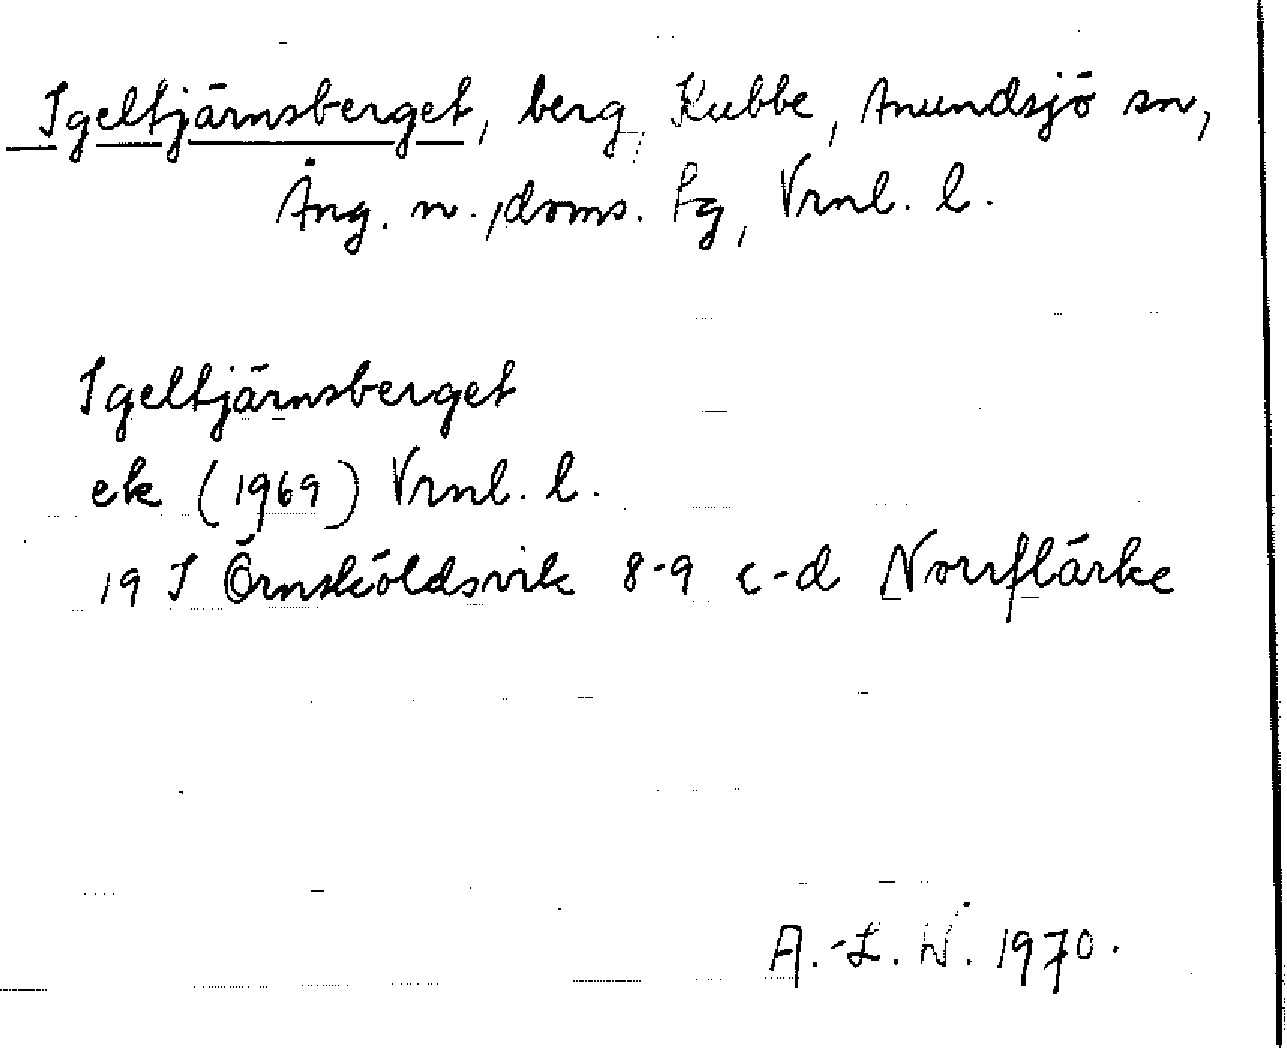 Igeltjärnsberget, berg, Kubbe, Anundsjö sn,
Ång. n., doms. fg, Vrnl. l.
Igeltjärnsberget
ek (1969) Vrnl. l.
19 I Örnsköldsvik 8-9 c-d Norrflärke
A.-L. W. 1970.